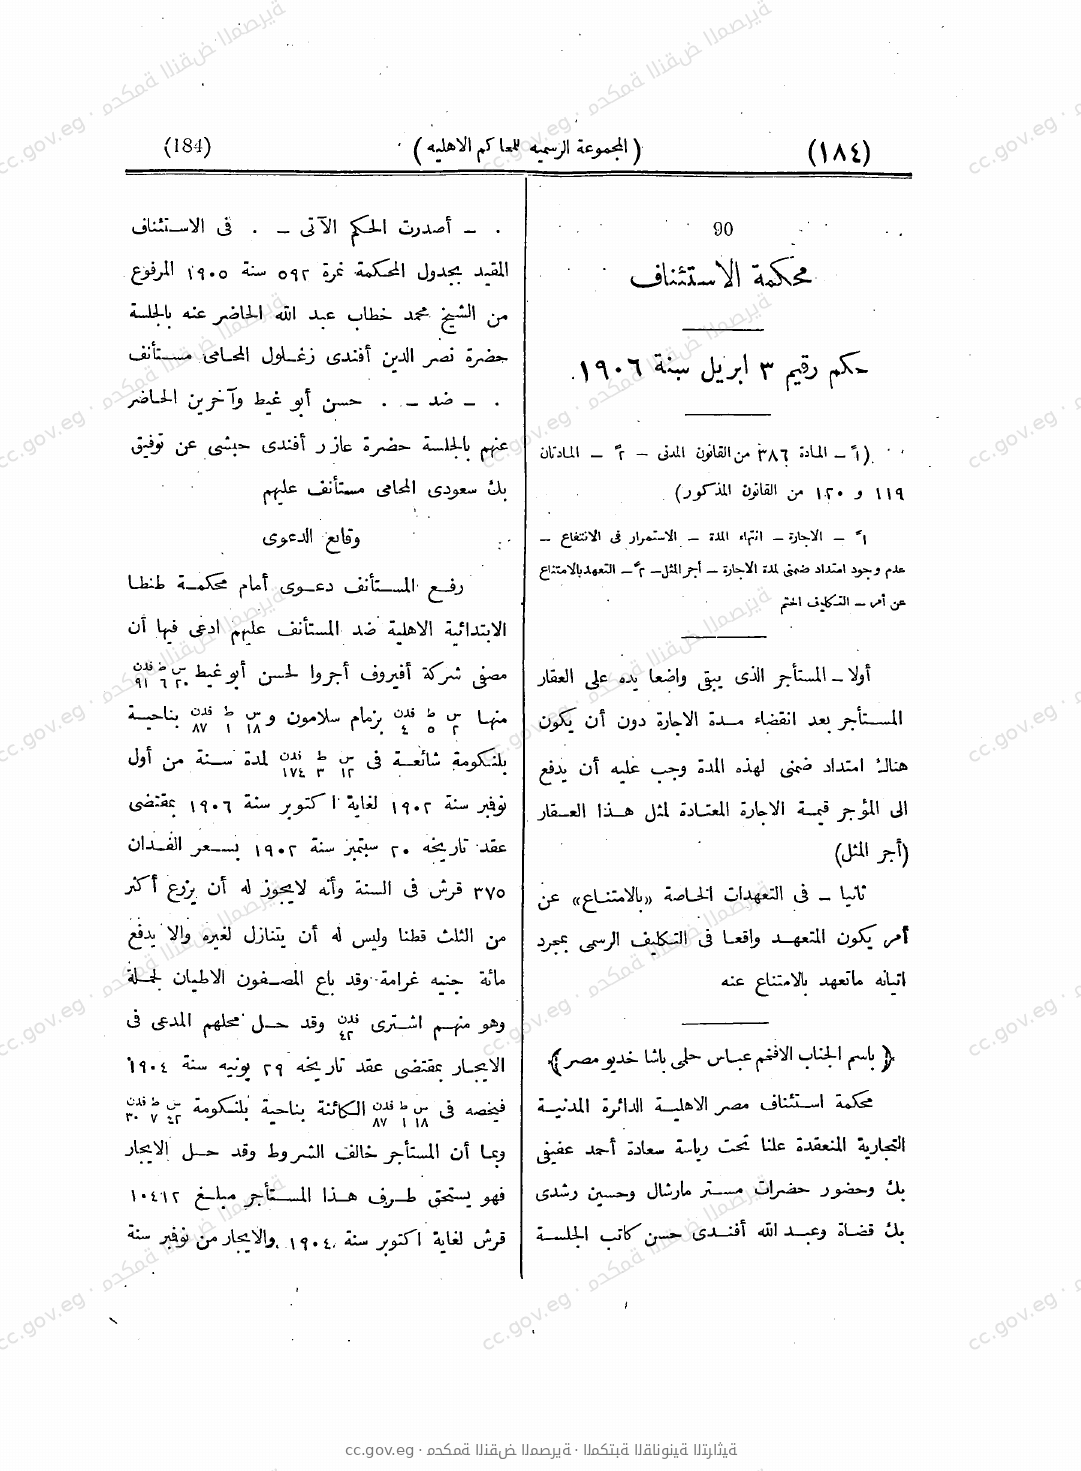 (١٨٤)
(المجموعة الرسميه للمحاكم الاهليه)
(184)
90
محكمة الاستئناف
حكم رقيم ٣ ابريل سنة ١٩٠٦.
(١ً – المادة ٣٨٦ من القانون المدنى – ٢ً – المادتان
١١٩ و ١٢٠ من القانون المذكور)
١ً – الاجارة – انتهاء المدة – الاستمرار فى الانتفاع –
عدم وجود امتداد ضمنى لمدة الاجارة – أجر المثل – ٢ً – التعهد بالامتناع
عن أمر – التكليف الحتم
أولا – المستأجر الذى يبقى واضعا يده على العقار
المستأجر بعد انقضاء مدة الاجارة دون أن يكون
هناك امتداد ضمنى لهذه المدة وجب عليه أن يدفع
الى المؤجر قيمة الاجارة المعتادة لمثل هذا العقار
(أجر المثل)
ثانيا – فى التعهدات الخاصة «بالامتناع» عن
أمر يكون المتعهد واقعا فى التكليف الرسمى بمجرد
اتيانه ماتعهد بالامتناع عنه
﴿ باسم الجناب الافخم عباس حلمى باشا خديو مصر ﴾
محكمة استئناف مصر الاهلية الدائرة المدنية
التجارية المنعقدة علنا تحت رياسة سعادة أحمد عفيفى
بك وحضور حضرات مستر مارشال وحسين رشدى
بك قضاة وعبد الله أفندى حسن كاتب الجلسة
– أصدرت الحكم الآتى – . فى الاستئناف
المقيد بجدول المحكمة نمرة ٥٩٢ سنة ١٩٠٥ المرفوع
من الشيخ محمد خطاب عبد الله الحاضر عنه بالجلسة
حضرة نصر الدين أفندى زغلول المحامى مستأنف
. – ضد – . حسن أبو غيط وآخرين الحاضر
عنهم بالجلسة حضرة عازر أفندى حبشى عن توفيق
بك سعودى المحامى مستأنف عليهم
وقايع الدعوى
رفع المستأنف دعوى أمام محكمة طنطا
الابتدائية الاهلية ضد المستأنف عليهم ادعى فيها أن
مصفى شركة أفيروف أجروا لحسن أبو غيط س ٢٠ ط ٦ فدن ٩١
منها س ٢ ط ٥ فدن ٤ بزمام سلامون و س ١٨ ط ١ فدن ٨٧ بناحية
بلنكومة شائعة فى س ١٢ ط ٣ فدن ١٧٤ لمدة سنة من أول
نوفمبر سنة ١٩٠٢ لغاية اكتوبر سنة ١٩٠٦ بمقتضى
عقد تاريخه ٢٠ سبتمبر سنة ١٩٠٢ بسعر الفدان
٣٧٥ قرش فى السنة وأنه لايجوز له أن يزرع أكثر
من الثلث قطنا وليس له أن يتنازل لغيره والا يدفع
مائة جنيه غرامة وقد باع المصفون الاطيان لجملة
وهو منهم اشترى فدن ٤٢ وقد حل محلهم المدعى فى
الايجار بمقتضى عقد تاريخه ٢٩ يونيه سنة ١٩٠٤
فيخصه فى س ١٨ ط ١ فدن ٨٧ الكائنة بناحية بلنكومة س ٤٢ ط ٧ فدن ٣٠
وبما أن المستأجر خالف الشروط وقد حل الايجار
فهو يستحق طرف هذا المستأجر مبلغ ١٠٤١٢
قرش لغاية اكتوبر سنة ١٩٠٤ والايجار من نوفمبر سنة
cc.gov.eg · محكمة النقض المصرية · المكتبة القانونية التراثية